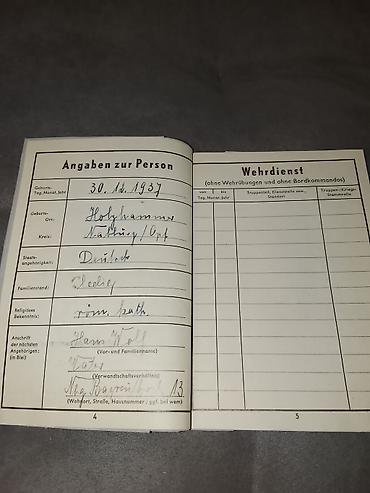 Angaben zur Person
Geburts-
Tag, Monat, Jahr
30. 12. 1937
Geburts-
Ort:
Holzhammer
Kreis:
Nabburg / Opf
Staats-
angehörigkeit:
Deutsch
Familienstand:
ledig
Religiöses
Bekenntnis:
röm. kath.
Anschrift
der nächsten
Angehörigen:
(in Blei)
Hans Wolf
(Vor- und Familienname)
Vater
(Verwandtschaftsverhältnis)
13
(Wohnort, Straße, Hausnummer / ggf. bei wem)
4
Wehrdienst
(ohne Wehrübungen und ohne Bordkommandos)
von
bis
Tag, Monat, Jahr
Truppenteil, Dienststelle usw.,
Standort
Truppen-/Kriegs-
Stammrolle
5